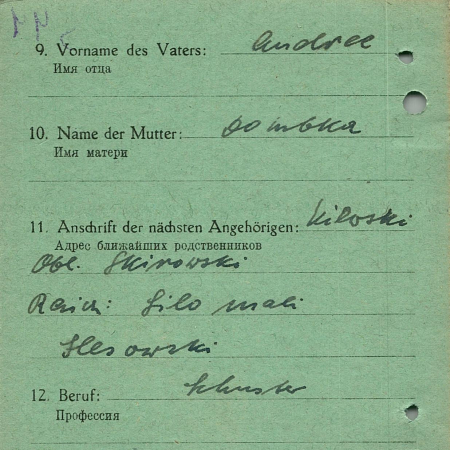 9. Vorname des Vaters: Andree
Имя отца
10. Name der Mutter: Dombka
Имя матери
11. Anschrift der nächsten Angehörigen: Kiloski
Адрес ближайших родственников
Obl. Skirowski
Raion: Silo mali
12. Beruf: Schuster
Профессия